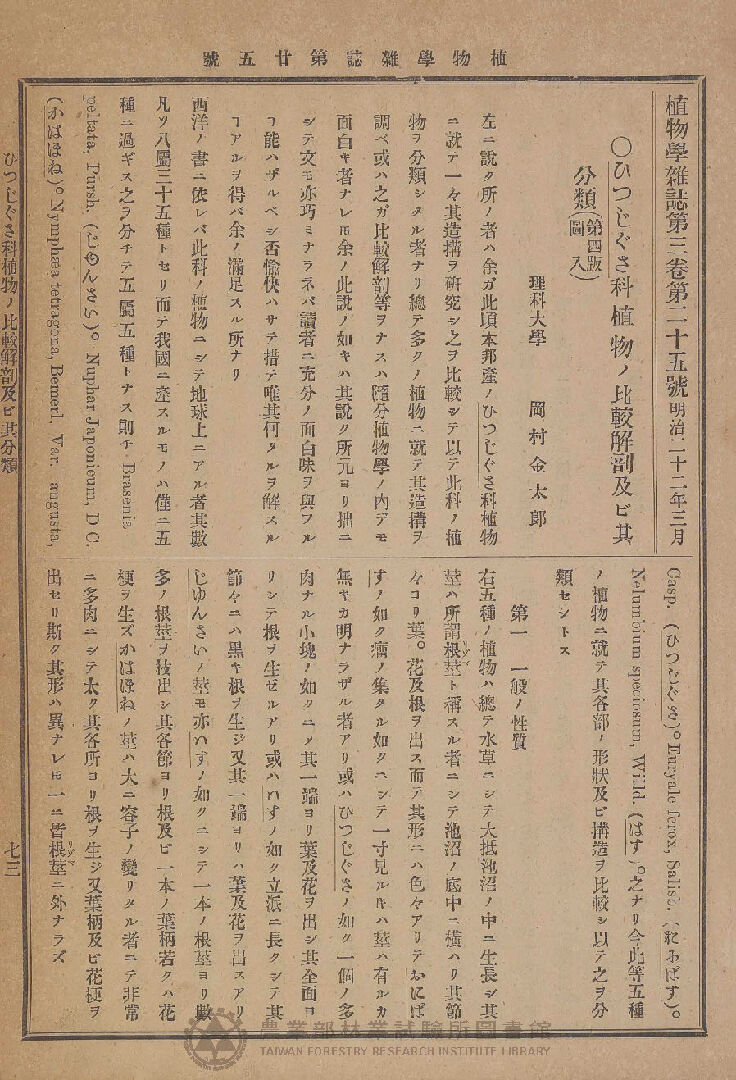 植物學雜誌第廿五號
植物學雜誌第三卷第二十五號 明治二十二年三月
〇ひつじぐさ科植物ノ比較解剖及ビ其
分類(第四版圖入)
理科大學 岡村金太郎
左ニ說ク所ノ者ハ余ガ此頃本邦產ノひつじぐさ科植物
ニ就テ一々其造搆ヲ硏究シ之ヲ比較シテ以テ此科ノ植
物ヲ分類シタル者ナリ總テ多クノ植物ニ就テ其造搆ヲ
調べ或ハ之ガ比較解剖等ヲナスハ隨分植物學ノ內デモ
面白キ者ナレ𪜈余ノ此說ノ如キハ其說ク所元ヨリ拙ニ
シテ文モ亦巧ミナラネバ讀者ニ充分ノ面白味ヲ與フル
ヿ能ハザルベシ否愉快ハサテ措テ唯其何タルヲ解スル
ヿアルヲ得バ余ノ滿足スル所ナリ
西洋ノ書ニ依レバ此科ノ植物ニシテ地球上ニアル者其數
凡ソ八屬三十五種トセリ而テ我國ニ產スルモノハ僅ニ五
種ニ過ギス之ヲ分チテ五屬五種トナス則チ Brasenia
peltata, Pursh. (じゆんさい)。Nuphar Japonicum, D C.
(かはほね)。Nymphæa tetragora, Bemerl. Var. augusta,
Casp. (ひつじぐさ)。Euryale ferox, Salisb. (おにばす)。
Nelumbium speciosum, Willd. (はす)。之ナリ今此等五種
ノ植物ニ就テ其各部ノ形狀及ビ搆造ヲ比較シ以テ之ヲ分
類セントス
第一 一般ノ性質
右五種ノ植物ハ總テ水草ニシテ大抵池沼ノ中ニ生長シ其
莖ハ所謂根莖ト稱スル者ニシテ池沼ノ底中ニ橫ハリ其節
々ヨリ葉。花及根ヲ出ス而テ其形ニハ色々アリテおにば
すノ如ク瘤ノ集タル如クニシテ一寸見ルキハ莖ハ有ルカ
無キカ明ナラザル者アリ或ハひつじぐさノ如ク一個ノ多
肉ナル小塊ノ如クニメ其一端ヨリ葉及花ヲ出シ其全面ヨ
リシテ根ヲ生ゼルアリ或ハはすノ如ク立派ニ長クシテ其
節々ニハ黑キ根ヲ生ジ又其一端ヨリハ葉及花ヲ出スアリ
じゆんさいノ莖モ亦はすノ如クニシテ一本ノ根莖ヨリ數
多ノ根莖ヲ枝出シ其各節ヨリ根及ビ一本ノ葉柄若クハ花
梗ヲ生ズかはほねノ莖ハ大ニ容子ノ變リタル者ニテ非常
ニ多肉ニシテ太ク其各所ヨリ根ヲ生ジ又葉柄及ビ花梗ヲ
出セリ斯ク其形ハ異ナレ𪜈一ニ皆根莖ニ外ナラズ
ひつじぐさ科植物ノ比較解剖及ビ其分類
七三
農業部林業試驗所圖書館
TAIWAN FORESTRY RESEARCH INSTITUTE LIBRARY